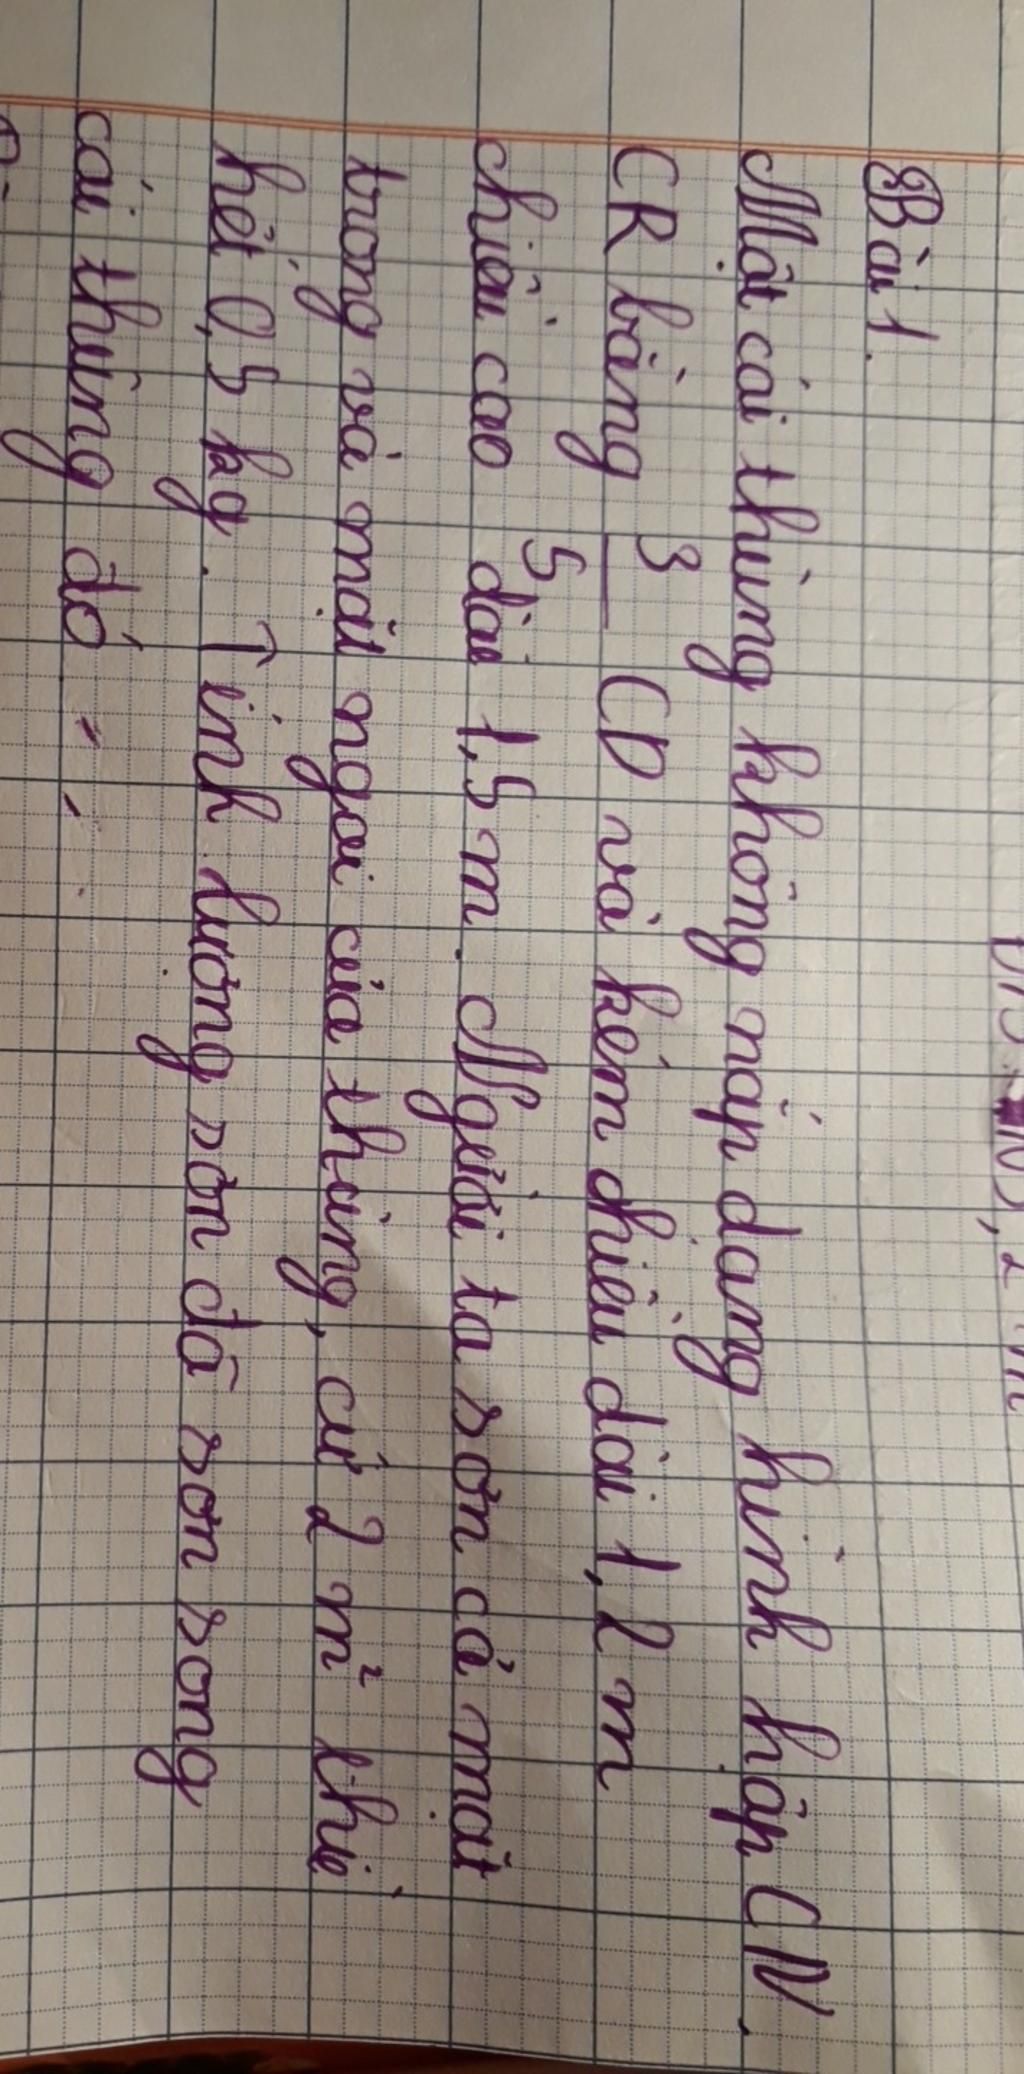 Bài 1.
Một cái thùng không nắp dạng hình hộp CN.
CR bằng 3/5 CD và kém chiều dài 1,2 m
chiều cao dài 1,5 m. Người ta sơn cả mặt
trong và mặt ngoài của thùng, cứ 2 m² thì
hết 0,5 kg. Tính lượng sơn đã sơn song
cái thùng đó